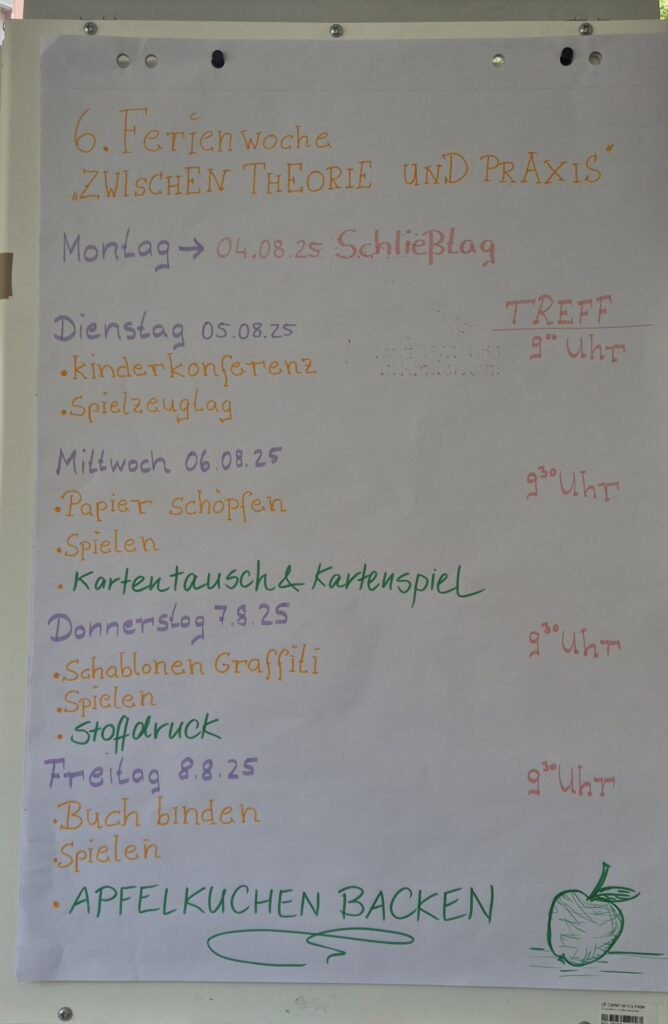 6. Ferienwoche
„ZWISCHEN THEORIE UND PRAXIS"
Montag → 04.08.25 Schließtag
TREFF
Dienstag 05.08.25
9⁰⁰ Uhr
• Kinderkonferenz
• Spielzeugtag
Mittwoch 06.08.25
9³⁰ Uhr
• Papier schöpfen
• Spielen
• Kartentausch & Kartenspiel
Donnerstag 7.8.25
9³⁰ Uhr
• Schablonen Graffiti
• Spielen
• Stoffdruck
Freitag 8.8.25
9³⁰ Uhr
• Buch binden
• Spielen
• APFELKUCHEN BACKEN